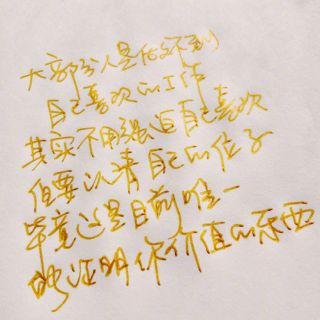 大部分人是做不到
自己喜欢的工作
其实不用强迫自己喜欢
但要认清自己的位子
毕竟这是目前唯一
能证明你价值的东西